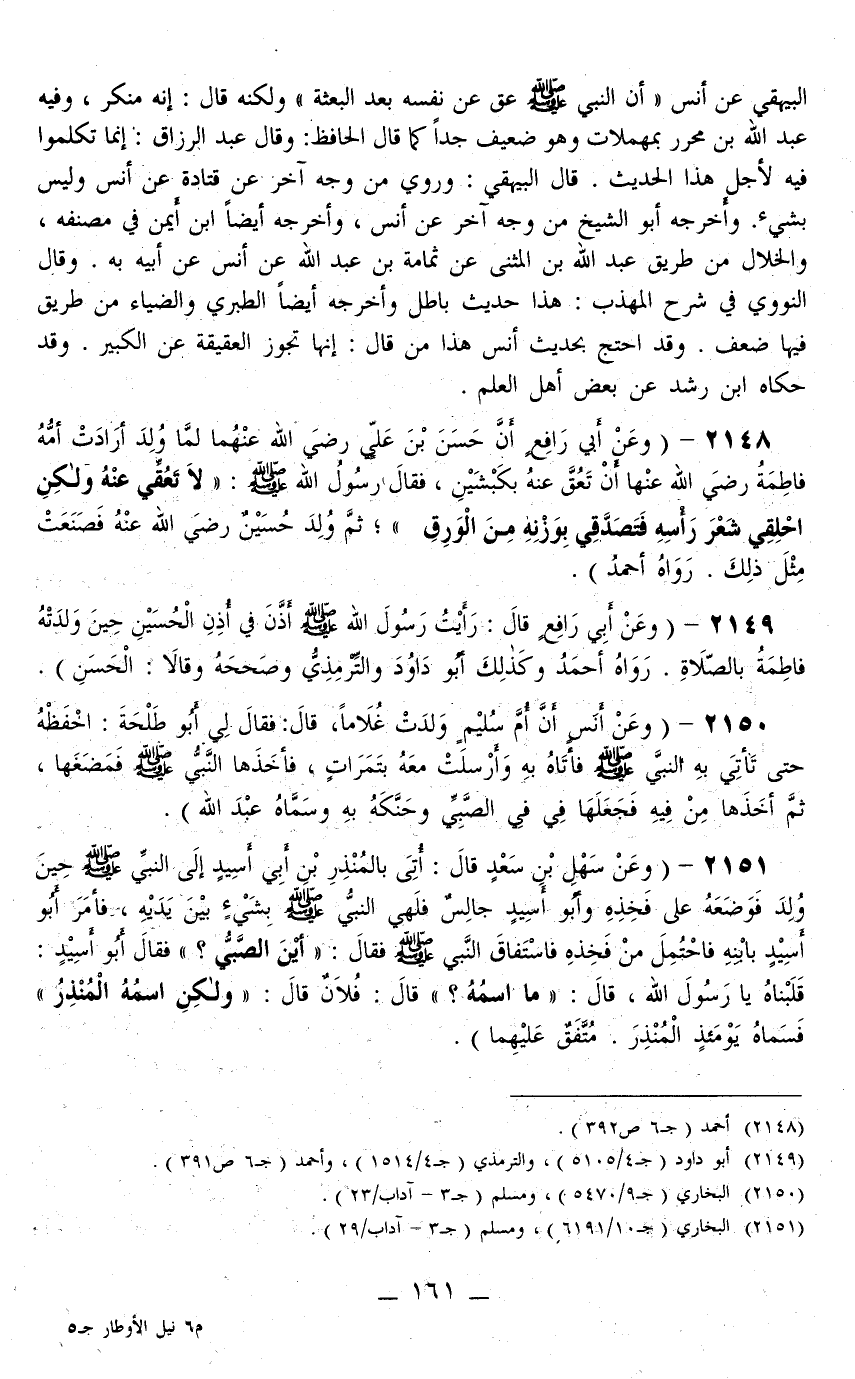 البيهقي عن أنس « أن النبي ﷺ عق عن نفسه بعد البعثة » ولكنه قال : إنه منكر ، وفيه
عبد الله بن محرر بمهملات وهو ضعيف جداً كما قال الحافظ: وقال عبد الرزاق : إنما تكلموا
فيه لأجل هذا الحديث . قال البيهقي : وروي من وجه آخر عن قتادة عن أنس وليس
بشيء. وأخرجه أبو الشيخ من وجه آخر عن أنس ، وأخرجه أيضاً ابن أيمن في مصنفه ،
والخلال من طريق عبد الله بن المثنى عن ثمامة بن عبد الله عن أنس عن أبيه به . وقال
النووي في شرح المهذب : هذا حديث باطل وأخرجه أيضاً الطبري والضياء من طريق
فيها ضعف . وقد احتج بحديث أنس هذا من قال : إنها تجوز العقيقة عن الكبير . وقد
حكاه ابن رشد عن بعض أهل العلم .
٢١٤٨ – ( وعَنْ أَبي رَافِعٍ أَنَّ حَسَنَ بْنَ عَلَيّ رضيَ الله عنْهُما لمَّا وُلِدَ أرَادَتْ أمُّهُ
فاطِمَةُ رضيَ الله عنْها أَنْ تَعُقَّ عنهُ بكَبْشَيْنِ ، فقالَ رسُولُ الله ﷺ : « لاَ تَعُقِّي عنْهُ ولٰكِنِ
احْلِقِي شَعْرَ رَأْسِهِ فَتَصَدَّقِي بِوَزْنِهِ مِـنَ الْوَرِقِ » ؛ ثمَّ وُلِدَ حُسَيْنٌ رضي الله عنْهُ فَصَنَعَتْ
مِثْلَ ذلِكَ . رَوَاهُ أحمدُ ) .
٢١٤٩ – ( وعَنْ أَبِي رَافِعٍ قالَ : رَأَيْتُ رَسُولَ الله ﷺ أَذَّنَ في أُذِنِ الْحُسَيْنِ حِينَ وَلدَتْهُ
فاطِمَةُ بالصَّلَاةِ . رَوَاهُ أحمَدُ وكَذٰلِكَ أبُو دَاوُدَ والتِّرْمِذِيُّ وصَححَهُ وقالَا : الْحَسَنِ ) .
٢١٥٠ – ( وعَنْ أنَسٍ أَنَّ أُمَّ سُلَيْمٍ وَلدَتْ غُلَاماً، قالَ: فقالَ لِي أَبُو طَلْحَةَ : احْفَظْهُ
حتى تَأْتِيَ بِهِ النبيَّ ﷺ فأتَاهُ بِهِ وَأَرْسلَتْ معَهُ بتَمَرَاتٍ ، فأخَذَها النَّبيُّ ﷺ فَمَضَغَها ،
ثمَّ أخَذَها مِنْ فِيهِ فَجَعَلَهَا فِي فِي الصَّبِيِّ وحَنَّكَهُ بهِ وسَمَّاهُ عبْدَ الله ) .
٢١٥١ – ( وعَنْ سَهْلِ بْنِ سَعْدٍ قالَ : أُتِىَ بالمُنْذِرِ بْنِ أَبي أَسِيدٍ إلَى النبيِّ ﷺ حِينَ
وُلِدَ فَوَضَعَهُ على فَخِذِهِ وأَبُو أَسِيدٍ جالِسٌ فلَهي النبيُّ ﷺ بِشَيْءٍ بيْنَ يَدَيْهِ ، فأمَرَ أَبُو
أَسِيْدٍ بابْنِهِ فاحْتُمِلَ منْ فَخِذهِ فاسْتَفاقَ النَّبي ﷺ فقالَ : « أيْنَ الصَّبيُّ ؟ » فقالَ أَبُو أَسِيْدٍ :
قَلَبْناهُ يا رَسُولَ الله ، قالَ : « ما اسمُهُ ؟ » قالَ : فُلاَنٌ قالَ : « ولٰكِنِ اسمُهُ الْمُنْذِرُ »
فَسَماهُ يَوْمَئذٍ الْمُنْذِرَ . مُتَّفَقٌ عَلَيْهِما ) .
(٢١٤٨) أحمد ( جـ٦ ص٣٩٢ ) .
(٢١٤٩) أبو داود ( جـ٥١٠٥/٤ ) ، والترمذي ( جـ١٥١٤/٤ ) ، وأحمد ( جـ٦ ص٣٩١ ) .
(٢١٥٠) البخاري ( جـ٥٤٧٠/٩ ) ، ومسلم ( جـ٣ – آداب/٢٣ ) .
(٢١٥١) البخاري ( جـ٦١٩١/١٠ ) ، ومسلم ( جـ٣ – آداب/٢٩ ) .
– ١٦١ –
م٦ نيل الأوطار جـ٥